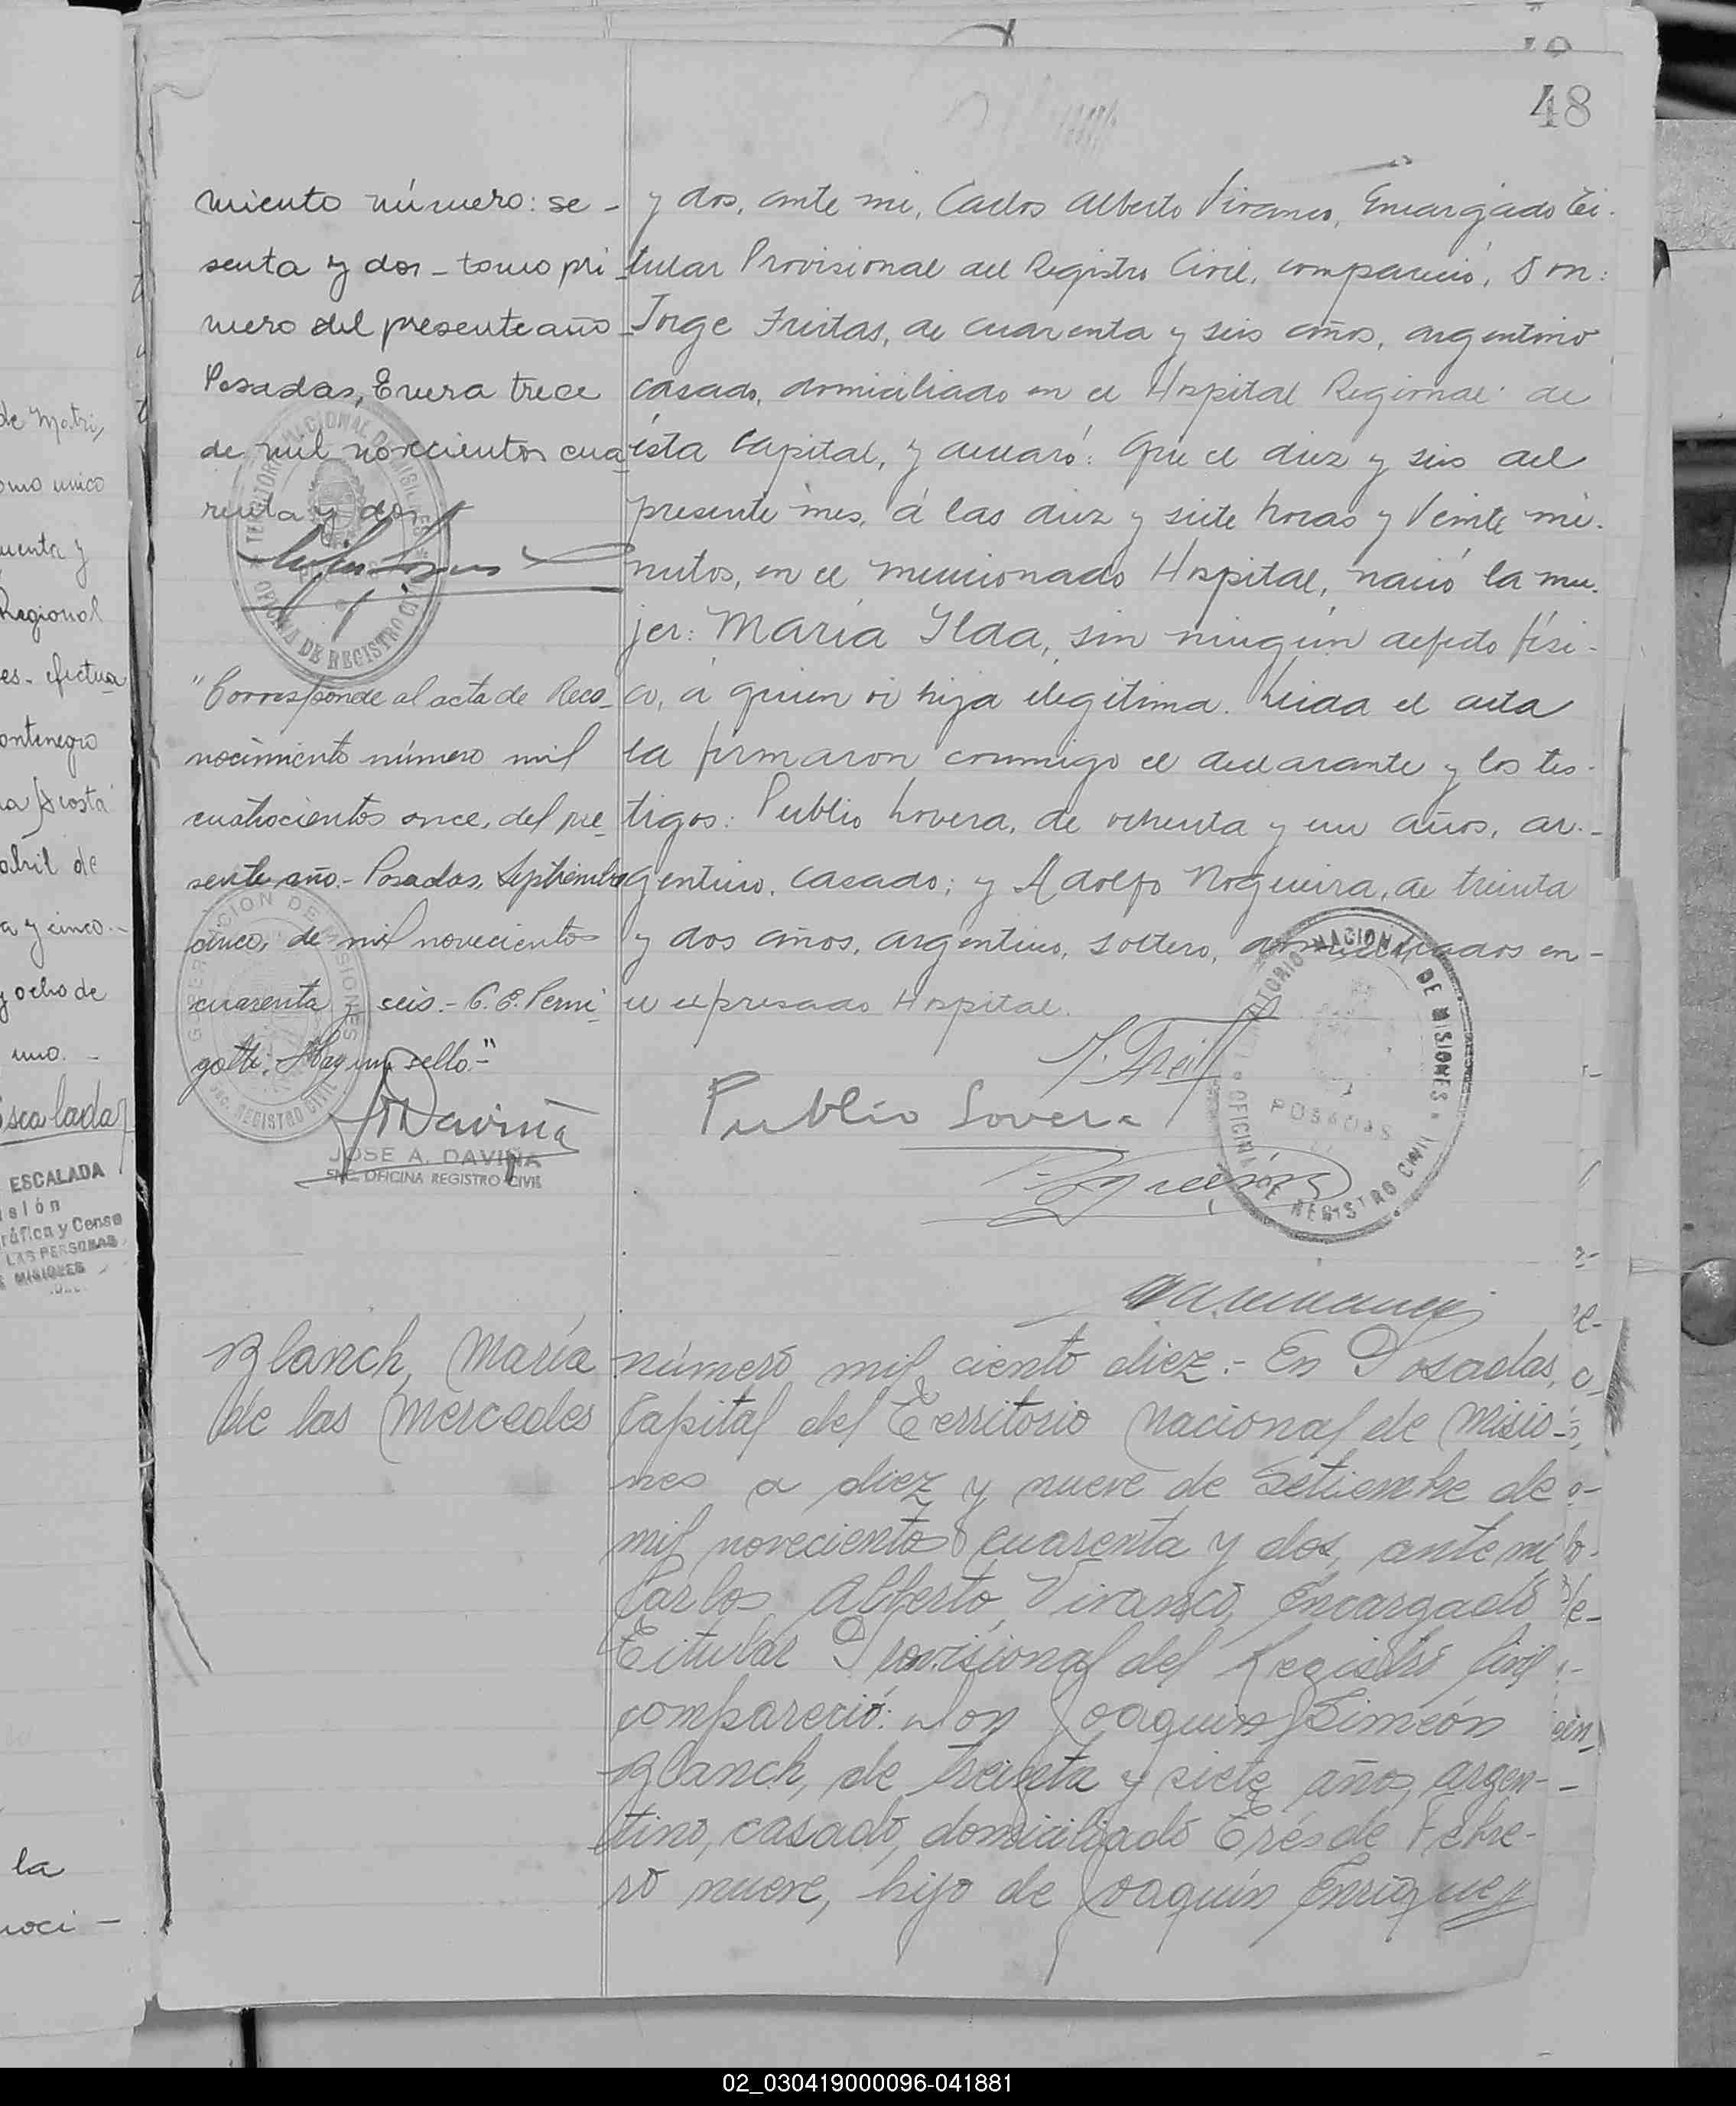 48
miento número: se-
senta y dos - tomo pri-
mero del presente año
Posadas, Enero trece
de mil novecientos cua-
renta y dos
TERRITORIO NACIONAL DE MISIONES
OFICINA DE REGISTRO CIVIL
"Corresponde al acta de Reco-
nocimiento número mil
cuatrocientos once, del pre-
sente año.- Posadas, Septiembre
cinco, de mil novecientos
cuarenta y seis.- C. E. Perni-
gotti. Hay un sello.-"
GOBERNACION DE MISIONES
REGISTRO CIVIL
JOSE A. DAVIÑA
OFICINA REGISTRO CIVIL
y dos, ante mi, Carlos Alberto Vivanco, Encargado Ti-
tular Provisional del Registro Civil, compareció, Don:
Jorge Freitas, de cuarenta y seis años, argentino
casado, domiciliado en el Hospital Regional de
ésta Capital, y declaró: Que el diez y seis del
presente mes, á las diez y siete horas y veinte mi-
nutos, en el mencionado Hospital, nació la mu-
jer: María Ilda, sin ningún defecto físi-
co, á quien vi hija ilegítima. Leida el acta
la firmaron conmigo el declarante y los tes-
tigos: Publio Lovera, de ochenta y un años, ar-
gentino, casado; y Adolfo Nogueira, de treinta
y dos años, argentino, soltero, domiciliados en-
el expresado Hospital.
J. Freit
Publio Lovera
TERRITORIO NACIONAL DE MISIONES
POSADAS
OFICINA DE REGISTRO CIVIL
Blanch, María
de las Mercedes
número mil ciento diez.- En Posadas,
Capital del Territorio Nacional de Misio-
nes a diez y nueve de Setiembre de
mil novecientos cuarenta y dos, ante mí
Carlos Alberto Vivanco, Encargado
Titular Provisional del Registro Civil
compareció: Don Joaquin Simeón
Blanch, de treinta y siete años, argen-
tino, casado, domiciliado Trés de Febre-
ro nueve, hijo de Joaquín Enrique y
de Matri,
omo unico
uenta y
Regional
es- efectua
ontenegro
a Acosta
abril de
a y cinco.-
y ocho de
uno.-
Escalada
ESCALADA
isión
ráfica y Censo
LAS PERSONAS
MISIONES
la
noci-
02_030419000096-041881